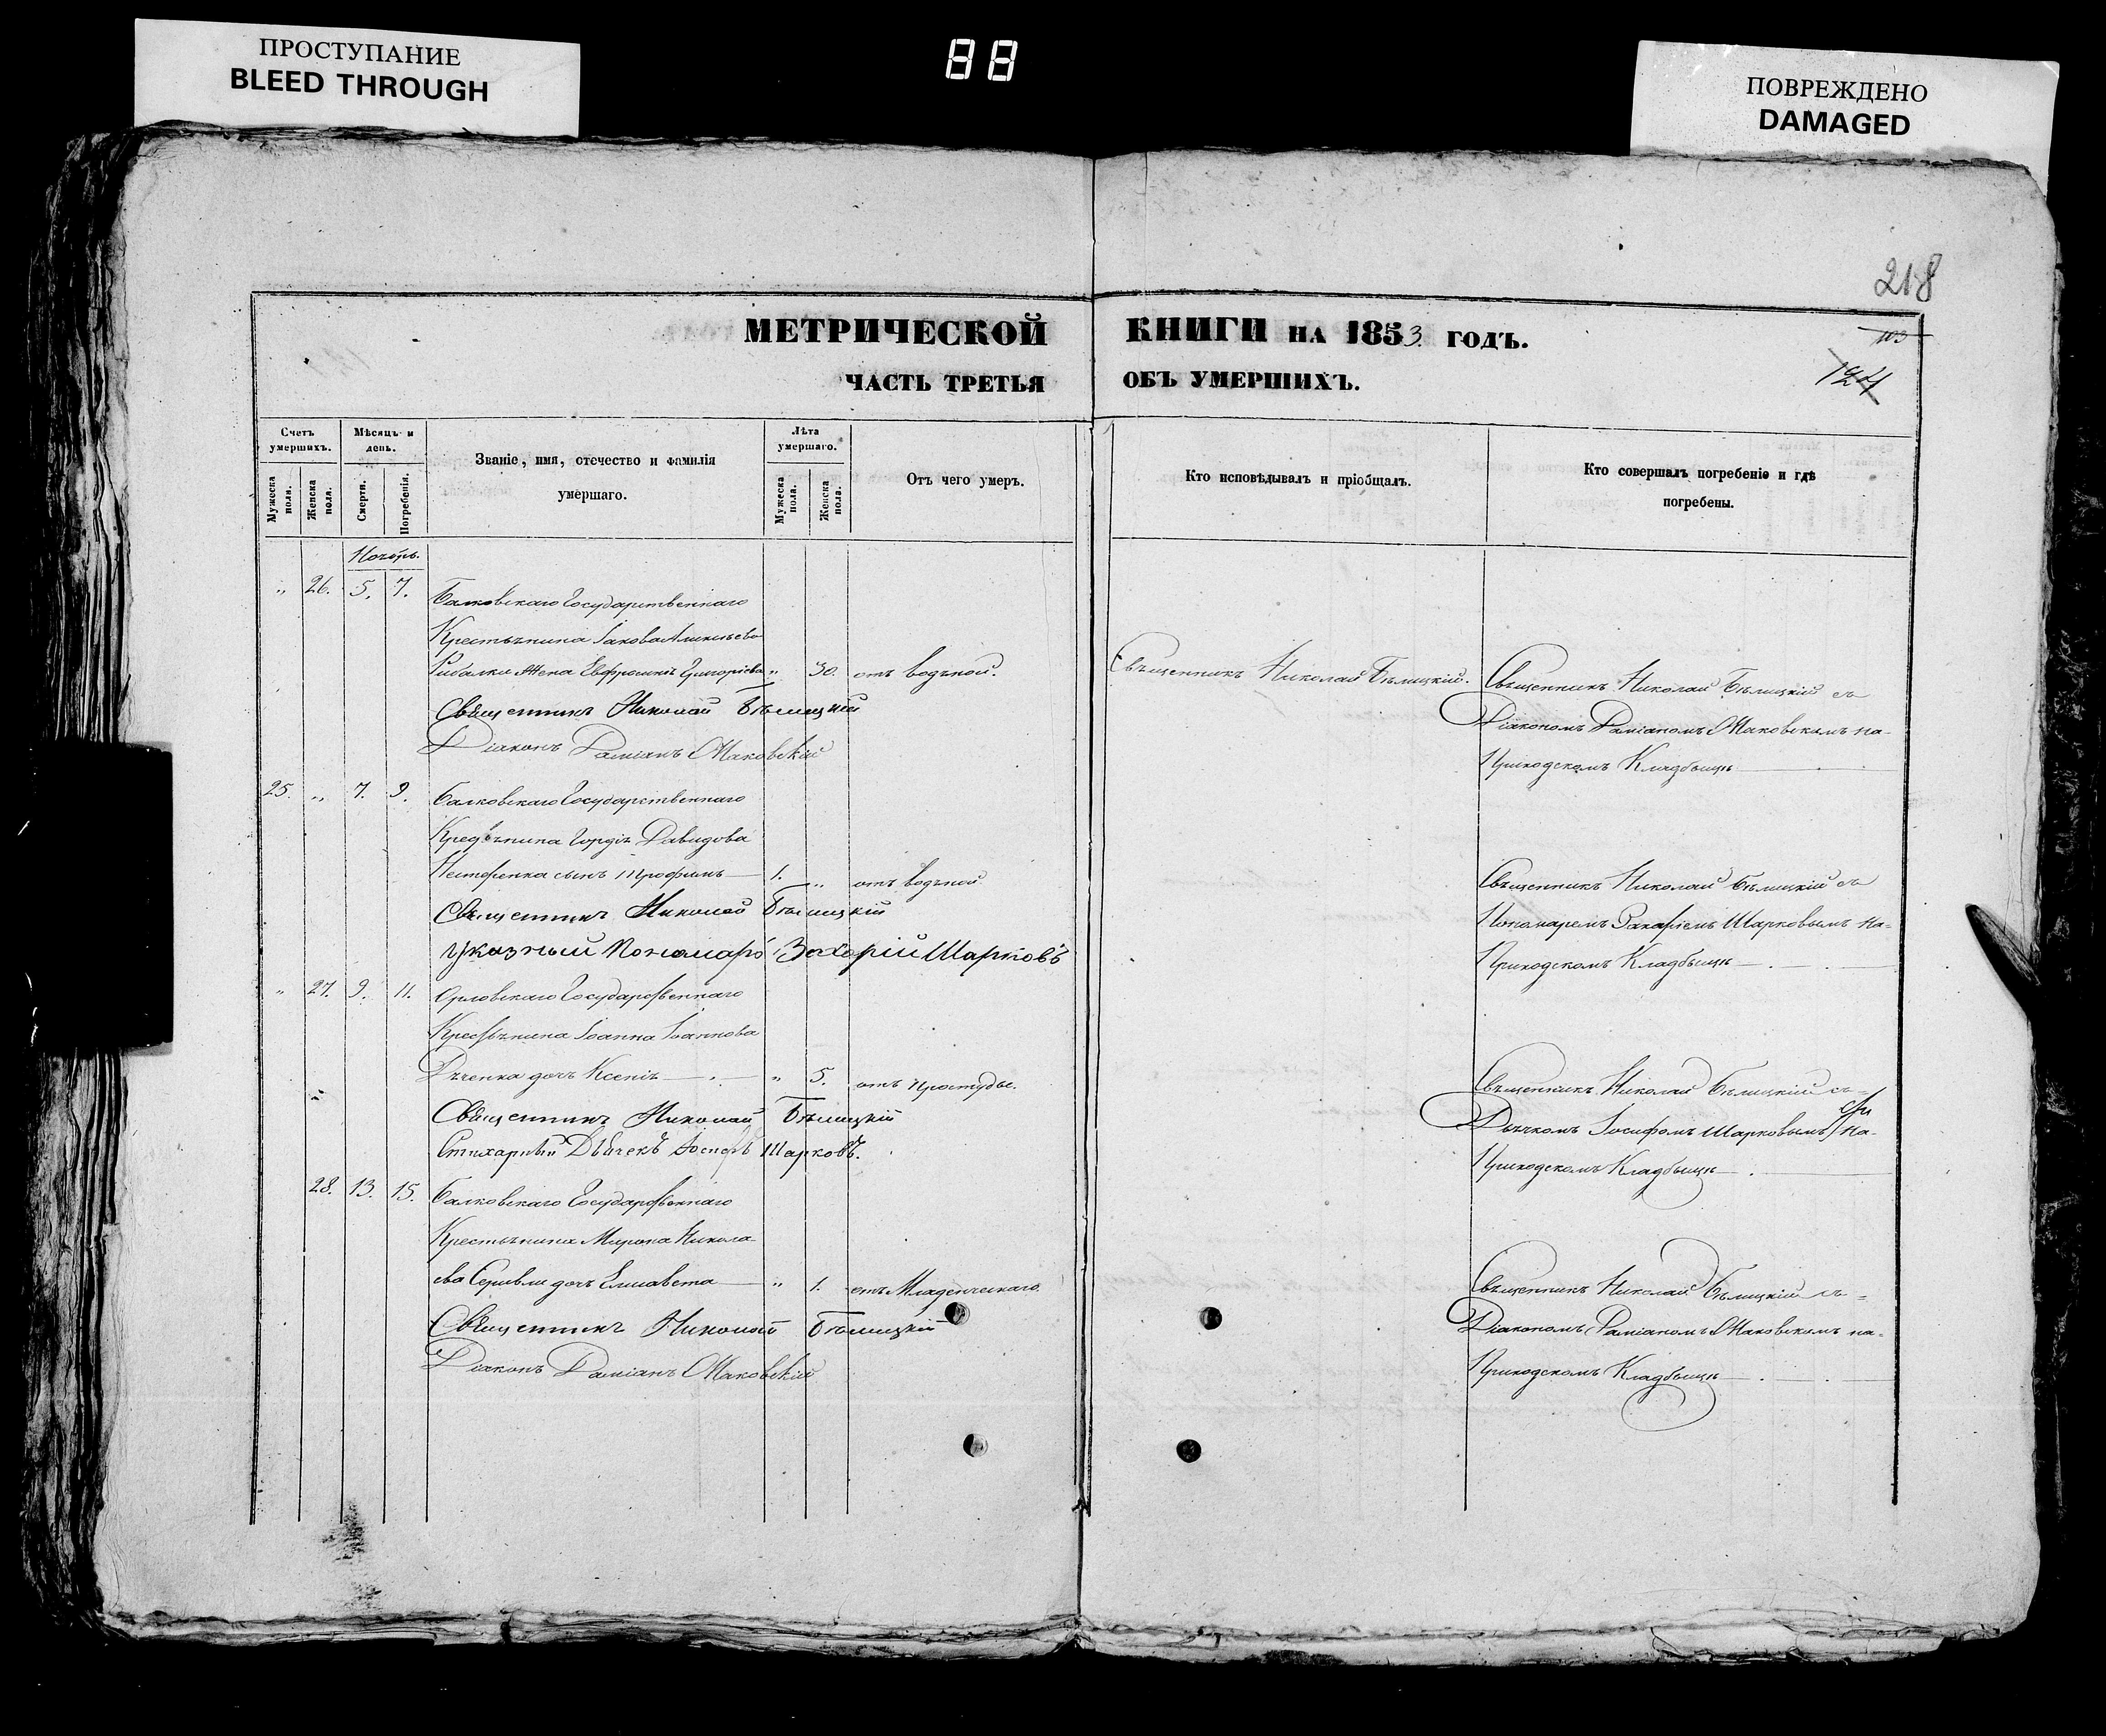 ПРОСТУПАНИЕ
BLEED THROUGH
88
ПОВРЕЖДЕНО
DAMAGED
218
МЕТРИЧЕСКОЙ КНИГИ НА 1853 ГОДЪ.
103
ЧАСТЬ ТРЕТЬЯ ОБЪ УМЕРШИХЪ.
124
Счетъ умершихъ.
Мужеска полн.
Женска пола.
Мѣсяцъ и день.
Смерти.
Погребенія.
Званіе, имя, отечество и фамилія умершаго.
Лѣта умершаго.
Мужеска пола.
Женска пола.
Отъ чего умеръ.
Кто исповѣдывалъ и пріобщалъ.
Кто совершалъ погребеніе и гдѣ погребены.
Ноябрь.
" 26. 5. 7. Балковскаго Государственнаго
Крестьянина Іакова Алексѣева
Рибалки жена Евфросинія Григоріева " 30. отъ водяной.
Священникъ Николай Бѣлицкій.
Священникъ Николай Бѣлицкій съ
Діакономъ Даміаномъ Маковскимъ на-
Приходскомъ Кладбищѣ
Священникъ Николай Бѣлицкій
Діаконъ Даміанъ Маковскій
25. " 7. 9. Балковскаго Государственнаго
Крестьянина Гордія Давидова
Нестеренка сынъ Трофимъ 1. " отъ водяной
Священникъ Николай Бѣлицкій съ
Пономаремъ Захаріемъ Шарковымъ на-
Приходскомъ Кладбищѣ
Священникъ Николай Бѣлицкій
Указный Пономарь Захарій Шарковъ
" 27. 9. 11. Орловскаго Государственнаго
Крестьянина Іоанна Іоаннова
Дяченка дочь Ксенія " 5. отъ простуды.
Священникъ Николай Бѣлицкій съ-
Дьячкомъ Іосифомъ Шарковымъ на-
Приходскомъ Кладбищѣ
Священникъ Николай Бѣлицкій
Стихарный Дьячекъ Іосифъ Шарковъ.
28. 13. 15. Балковскаго Государственнаго
Крестьянина Мирона Никола-
ева дочь Елисавета " 1. отъ Младенческаго.
Священникъ Николай Бѣлицкій съ-
Діакономъ Даміаномъ Маковскимъ на-
Приходскомъ Кладбищѣ
Священникъ Николай Бѣлицкій
Діаконъ Даміанъ Маковскій